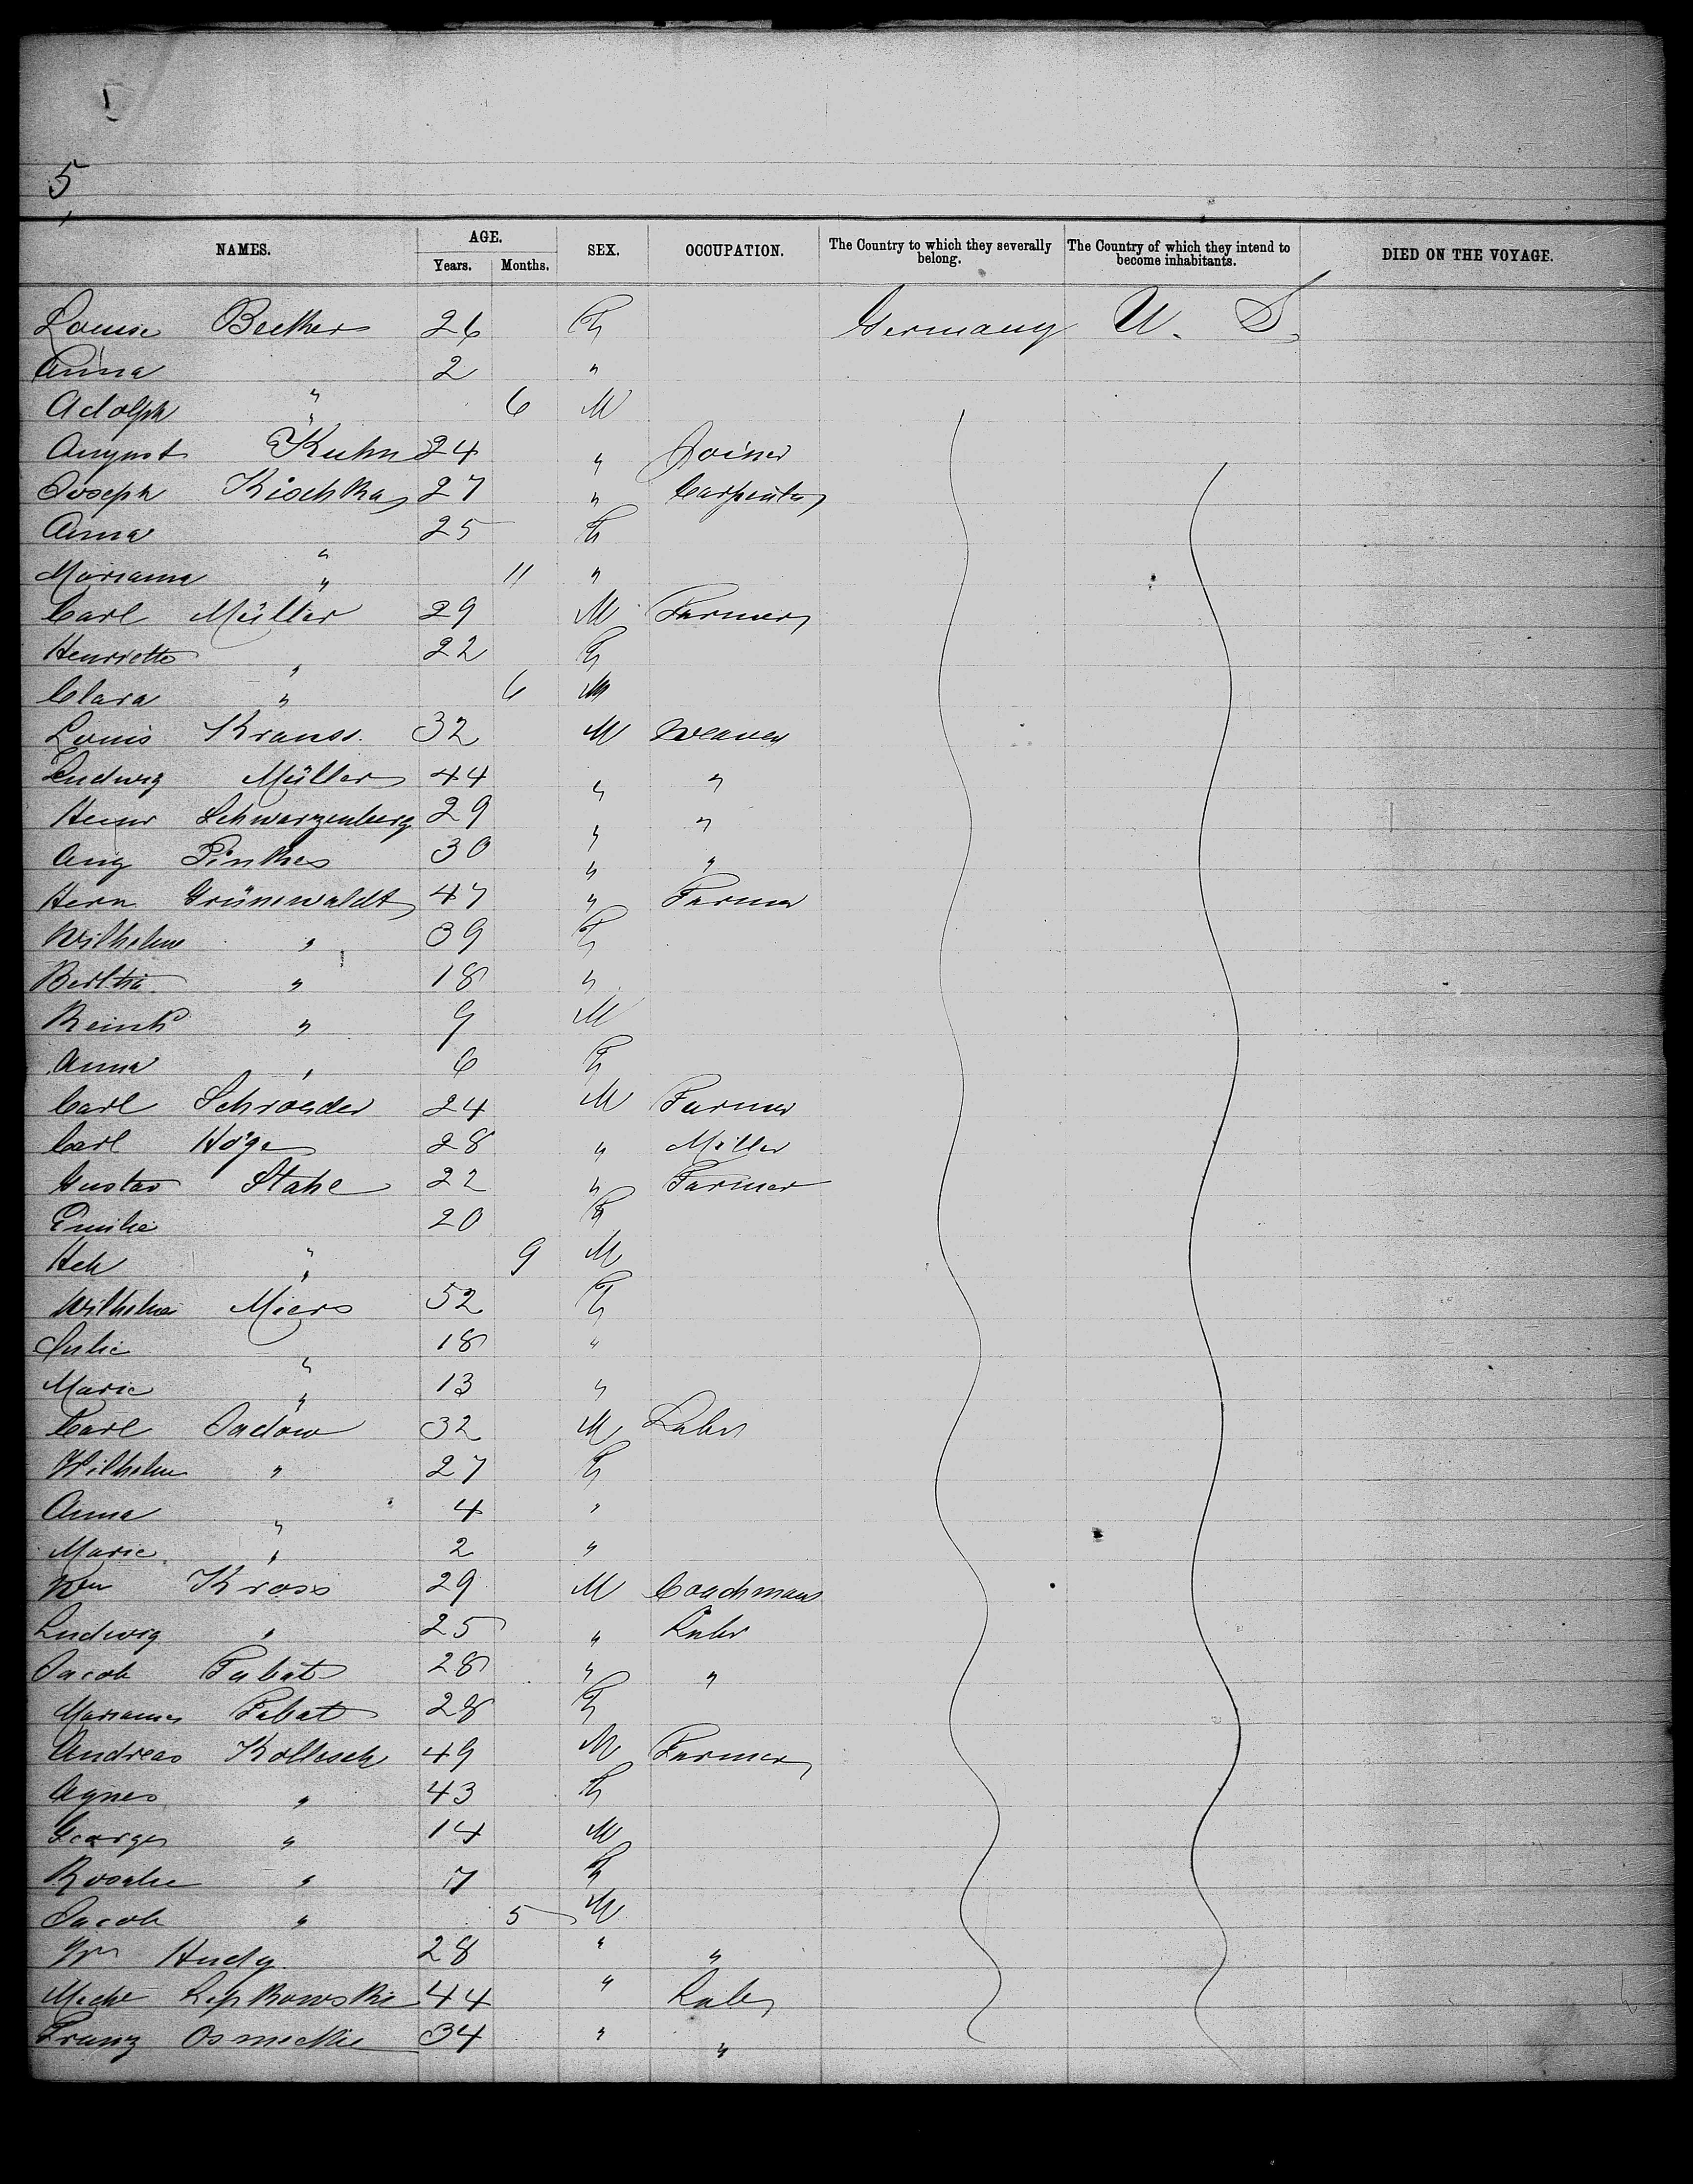 5
NAMES. AGE. Years. Months. SEX. OCCUPATION. The Country to which they severally belong. The Country of which they intend to become inhabitants. DIED ON THE VOYAGE.
Louise Becker 26 F Germany U. S.
Anna " 2 "
Adolph " 6 M
August Kuhn 24 " Joiner
Joseph Kischka 27 " Carpenter
Anna " 25 F
Marianna " 11 "
Carl Müller 29 M Farmer
Henriette " 22 F
Clara " 6 M
Louis Krauss. 32 M Weaver
Ludwig Müller 44 " "
Heinr Schwarzenberg 29 " "
Aug Pinkes 30 " "
Herm Grünewaldt 47 " Farmer
Wilhelm " 39 F
Bertha " 18 "
Reinh " 9 M
Anna " 6 F
Carl Schroeder 24 M Farmer
Carl Höge 28 " Miller
Gustav Stahl 22 " Farmer
Emilie " 20 F
Hch " 9 M
Wilhelm Miers 52 F
Julie " 18 "
Marie " 13 "
Carl Sadow 32 M Labr
Wilhelm " 27 F
Anna " 4 "
Marie " 2 "
Wm Kross 29 M Coachman
Ludwig " 25 " Labr
Jacob Pabat 28 " "
Marianna Pabat 28 F
Andreas Kollesch 49 M Farmer
Agnes " 43 F
George " 14 M
Rosalie " 7 F
Jacob " 5 M
Wm Hudy 28 " "
Michl Lipkowski 44 " Labr
Franz 34 " "